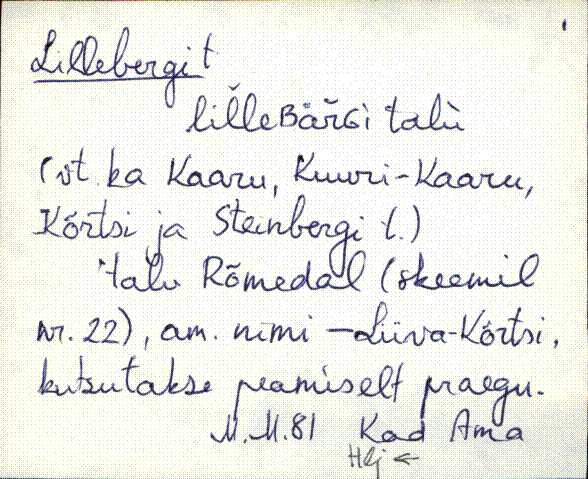 Lillebergi t
lĭlleʙäřɢi talù
(vt. ka Kaaru, Kuuri-Kaaru,
Kõrtsi ja Steinbergi t.)
talu Rõmedal (skeemil
nr. 22), am. nimi – Liiva-Kõrtsi,
kutsutakse peamiselt praegu.
M.M.81 Kad Ama
Hlj ←